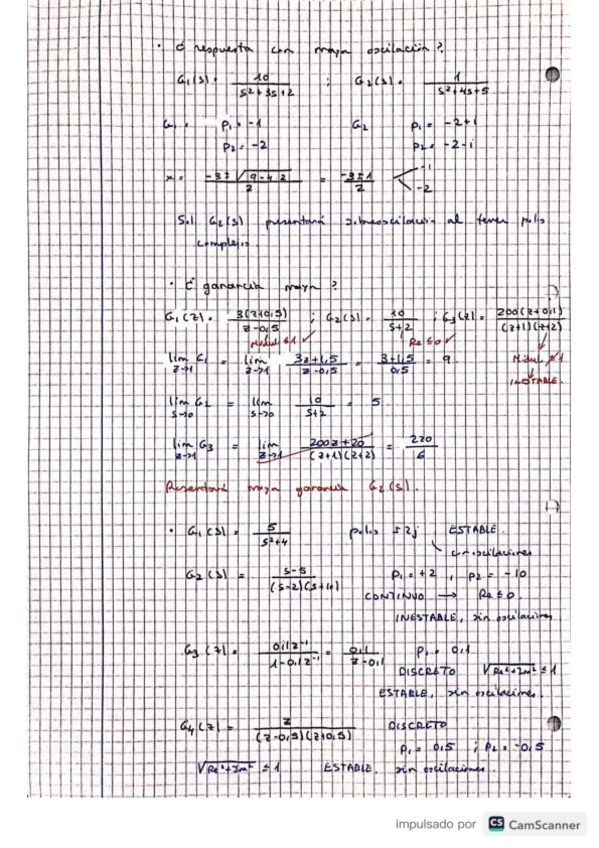 · ¿ respuesta con mayor oscilación ?
G₁(s) = 10 / (s²+3s+2) ; G₂(s) = 1 / (s²+4s+5)
G₁ = p₁ = -1 G₂ p₁ = -2+i
p₂ = -2 p₂ = -2-i
x = (-3±√(9-4·2)) / 2 = (-3±1) / 2 < -1
-2
Sol G₂(s) presentará sobreoscilación al tener polos
complejos.
· ¿ ganancia mayor ?
G₁(z) = 3(z+0,5) / (z-0,5) ; G₂(s) = 10 / (s+2) ; G₃(z) = 200(z+0,1) / ((z+1)(z+2))
Módul ≤ 1 ✓ Re ≤ 0 ✓
lim z→1 G₁ = lim z→1 (3z+1,5) / (z-0,5) = (3+1,5) / 0,5 = 9 Módul ≰ 1
INESTABLE.
lim s→0 G₂ = lim s→0 10 / (s+2) = 5.
lim z→1 G₃ = lim z→1 (200z+20) / ((z+1)(z+2)) = 220 / 6
Presentará mayor ganancia G₂(s).
· G₁(s) = 5 / (s²+4) polos ±2j ESTABLE.
con oscilaciones
G₂(s) = (s-5) / ((s-2)(s+10)) p₁ = +2 , p₂ = -10
CONTINUO → Re ≤ 0.
INESTABLE, sin oscilaciones
G₃(z) = 0,1z⁻¹ / (1-0,1z⁻¹) = 0,1 / (z-0,1) p₁ = 0,1
DISCRETO √(Re²+Im²) ≤ 1
ESTABLE, sin oscilaciones.
G₄(z) = z / ((z-0,5)(z+0,5)) DISCRETO
p₁ = 0,5 ; p₂ = -0,5
√(Re²+Im²) ≤ 1 ESTABLE. sin oscilaciones.
impulsado por CS CamScanner